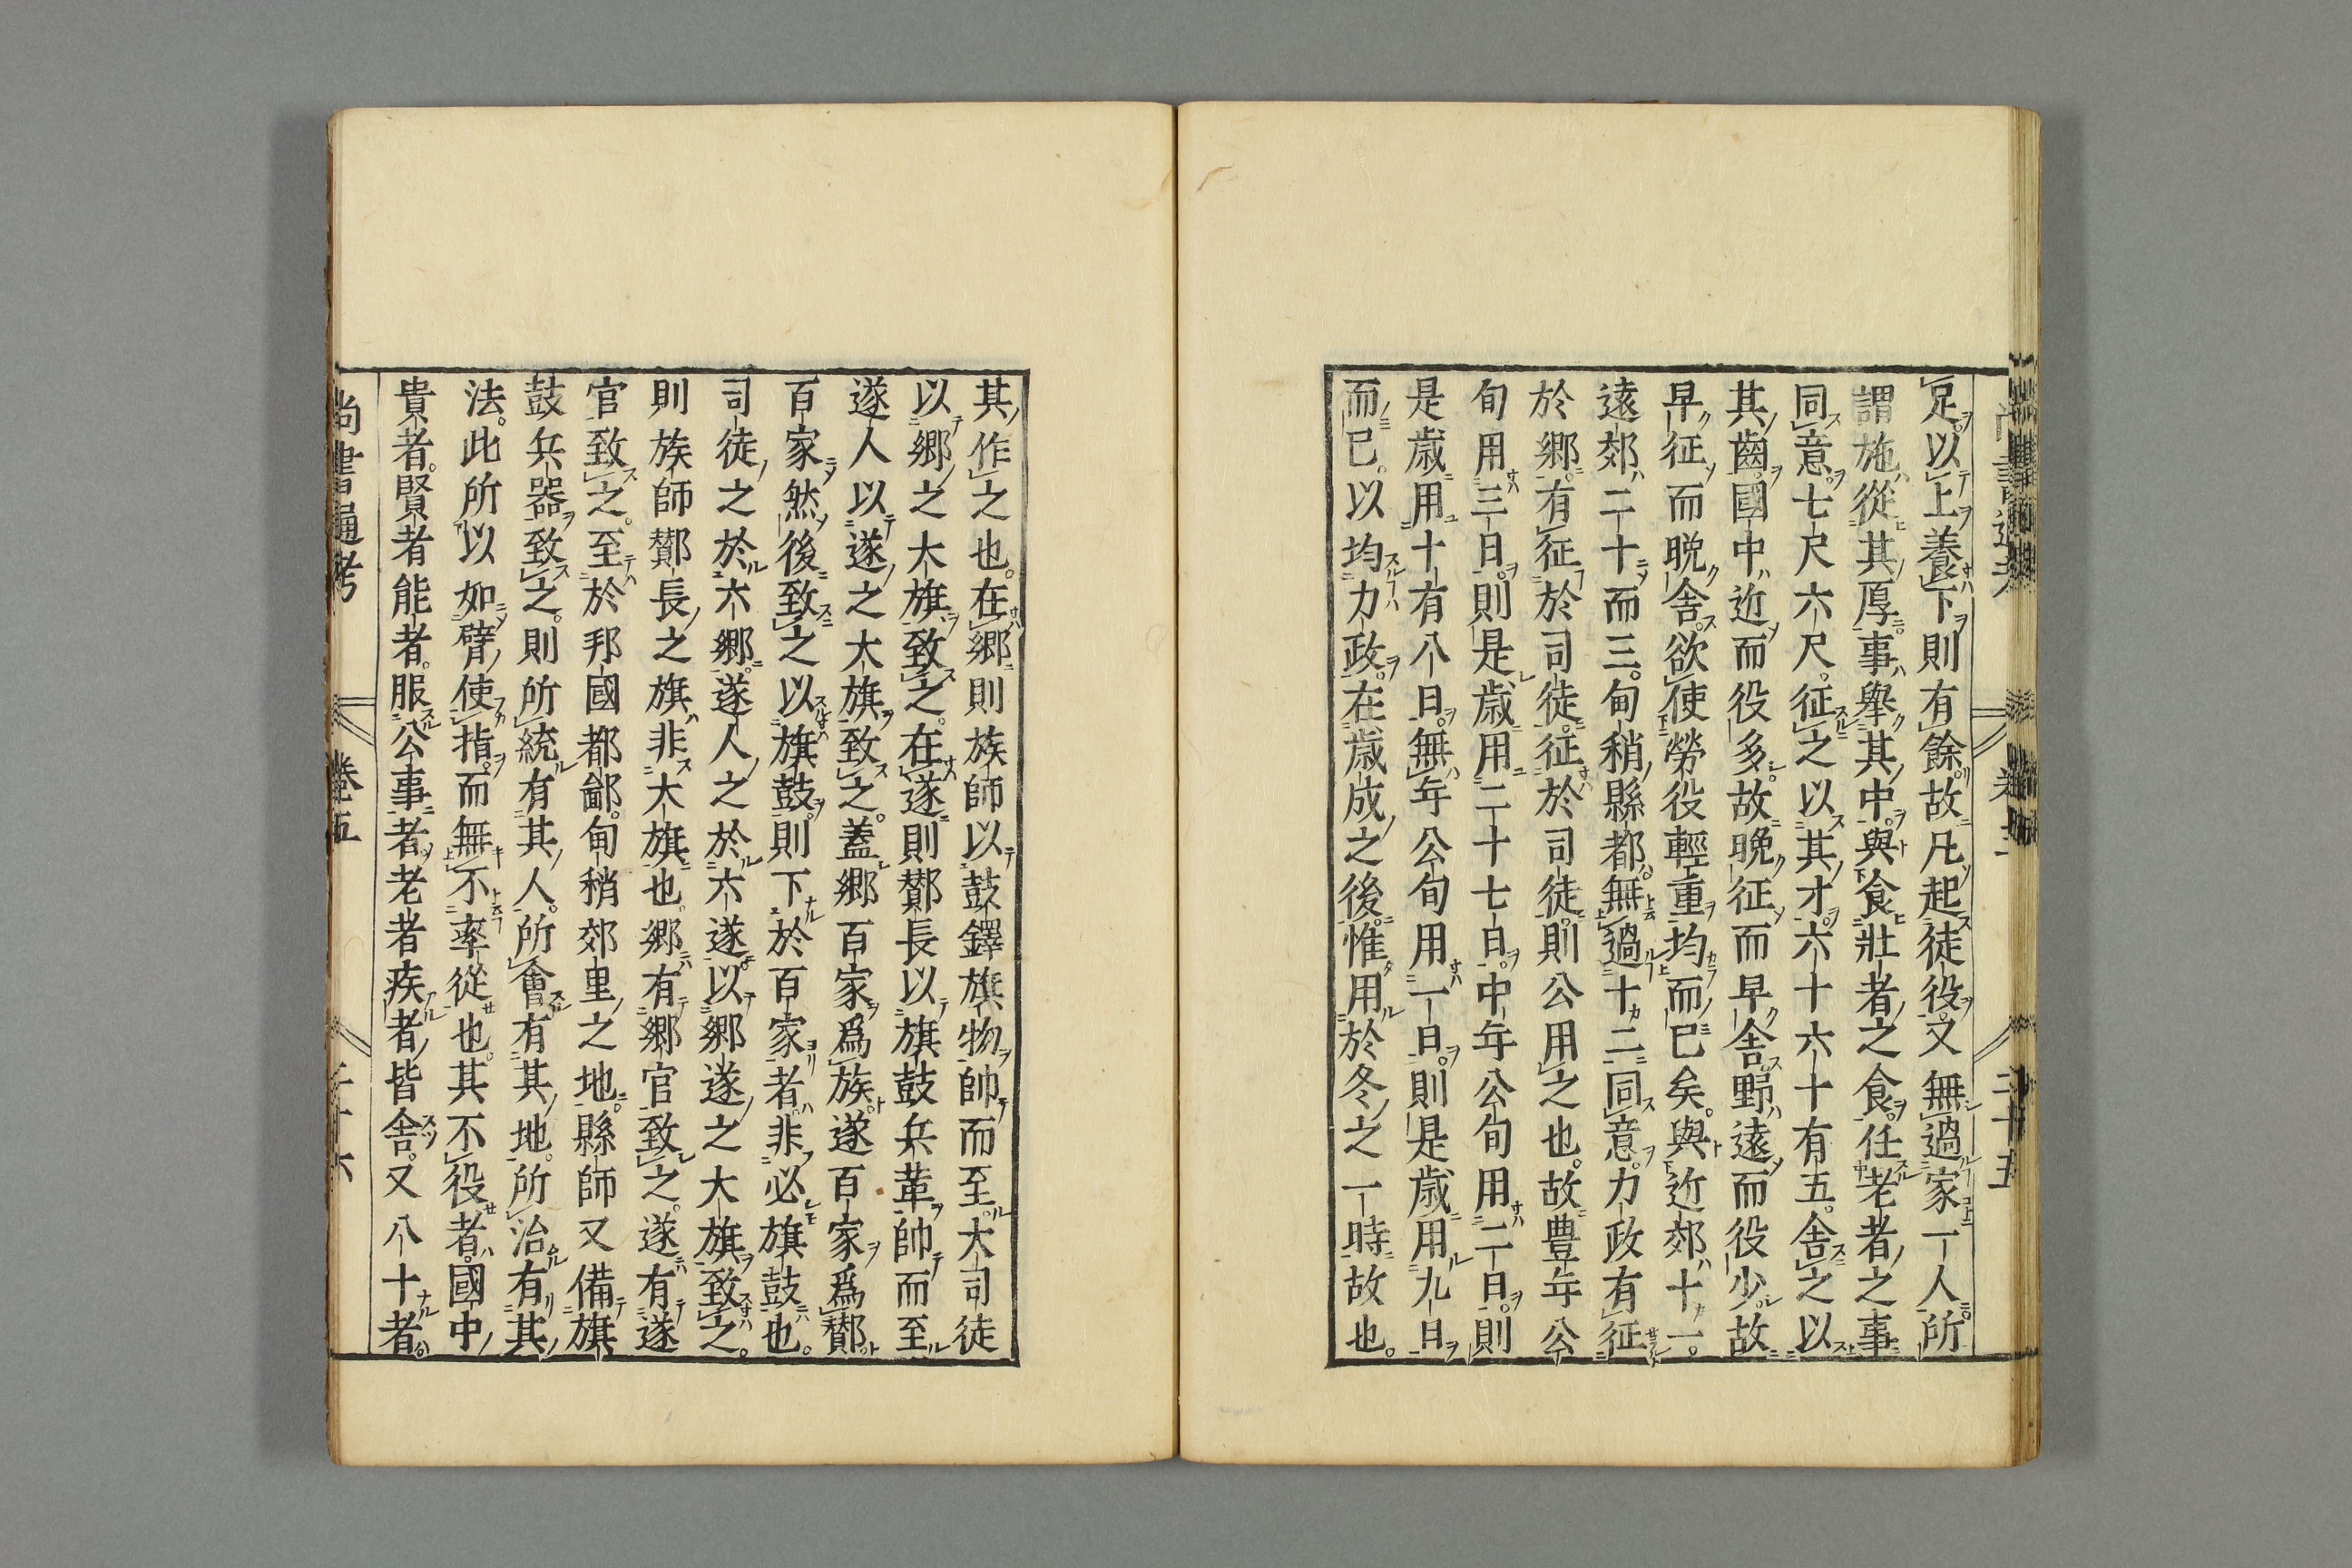 足以上養下則有餘故凡起徒役。又無過家一人所
謂施從其厚。事舉其中。與食壯者之食。任老者之事
同意。七尺六尺。征之以其才。六十六十有五。舍之以
其齒。國中近而役多。故晚征而早舍。野遠而役少。故
早征而晚舍。欲使勞役輕重均而已矣。與近郊十一。
遠郊二十而三。甸稍縣都。無過十二同意。力政有征
於鄉。有征於司徒。征於司徒。則公用之也。故豊年公
旬用三日。則是歲用二十七日。中年公旬用二日。則
是歲用十有八日。無年公旬用一日。則是歲用九日
而已。以均力政。在歲成之後。惟用於冬之一時故也。
其作之也。在鄉則族師以鼓鐸旗物帥而至。大司徒
以鄉之大旗致之。在遂則酇長以旗鼓兵革帥而至
遂人以遂之大旗致之。蓋鄉百家爲族。遂百家爲酇
百家然後致之以旗鼓。則下於百家者。非必旗鼓也。
司徒之於六鄉。遂人之於六遂以鄉遂之大旗致之。
則族師酇長之旗非大旗也。鄉有鄉官致之。遂有遂
官致之。至於邦國都鄙。甸稍郊里之地。縣師又備旗
鼓兵器致之。則所統有其人。所會有其地。所治有其
法。此所以如臂使指。而無不率從也。其不役者。國中
貴者。賢者能者。服公事者。老者疾者皆舍。又八十者。
尚書通考 卷五 二十六